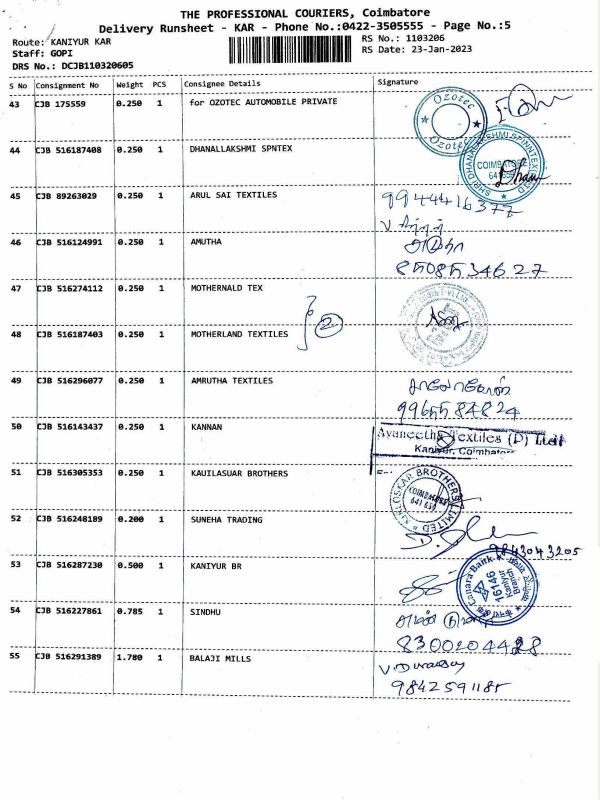 THE PROFESSIONAL COURIERS, Coimbatore
Delivery Runsheet - KAR - Phone No.:0422-3505555 - Page No.:5
Route: KANIYUR KAR
RS No.: 1103206
Staff: GOPI
RS Date: 23-Jan-2023
DRS No.: DCJB110320605
S No Consignment No Weight PCS Consignee Details Signature
43 CJB 175559 0.250 1 for OZOTEC AUTOMOBILE PRIVATE
Ozotec
Ozotec
44 CJB 516187408 0.250 1 DHANALLAKSHMI SPNTEX
COIMBATORE
45 CJB 89263029 0.250 1 ARUL SAI TEXTILES
9944416377
46 CJB 516124991 0.250 1 AMUTHA
அமுதா
8508534627
47 CJB 516274112 0.250 1 MOTHERNALD TEX
2
48 CJB 516187403 0.250 1 MOTHERLAND TEXTILES
49 CJB 516296077 0.250 1 AMRUTHA TEXTILES
9965584824
50 CJB 516143437 0.250 1 KANNAN
Avaneetha Textiles (P) Ltd
Kaniyur, Coimbatore
51 CJB 516305353 0.250 1 KAUILASUAR BROTHERS
KIRLOSKAR BROTHERS LIMITED
COIMBATORE
641 659
52 CJB 516248189 0.200 1 SUNEHA TRADING
9843043205
53 CJB 516287230 0.500 1 KANIYUR BR
Canara Bank
16146
Kaniyur
Branch
54 CJB 516227861 0.785 1 SINDHU
8300204428
55 CJB 516291389 1.780 1 BALAJI MILLS
9842591185